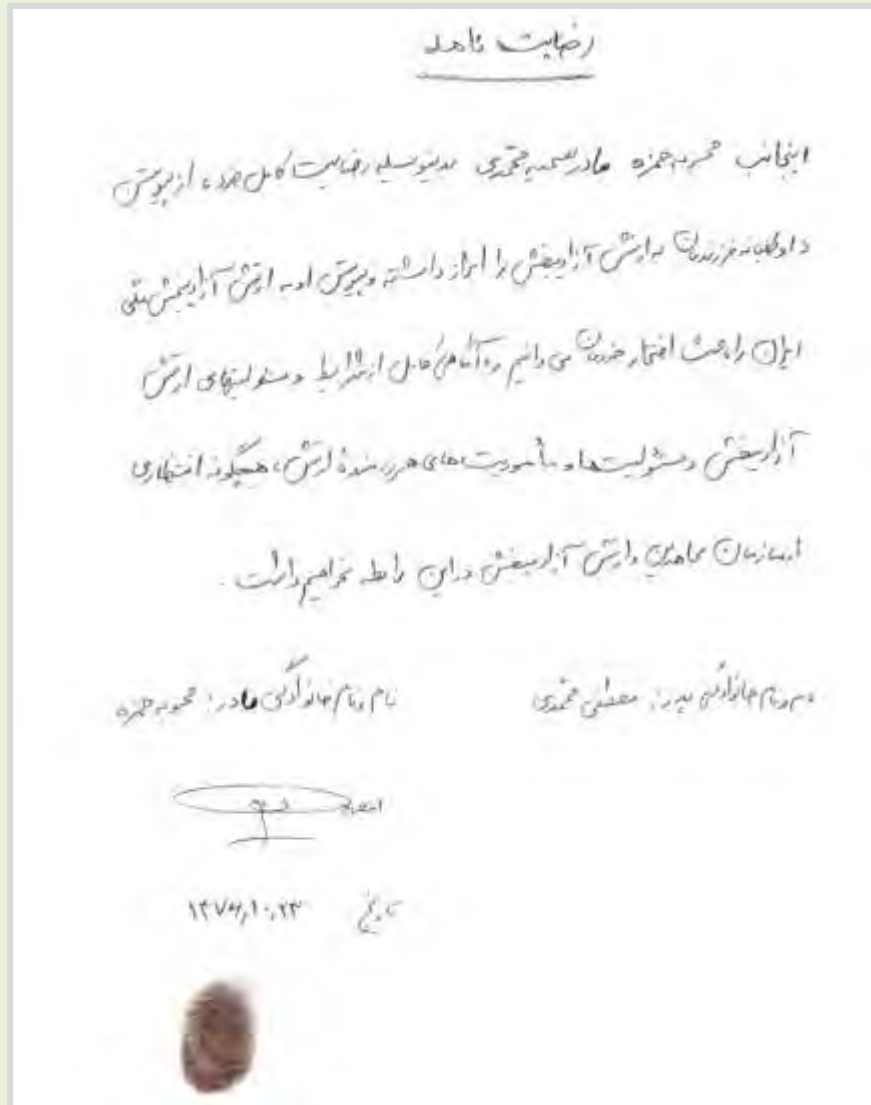 رضایت نامه
اینجانب محبوبه حمزه مادر سمیه محمدی بدینوسیله رضایت کامل خود، از پیوستن
داوطلبانه فرزندمان به ارتش آزادیبخش را ابراز داشته و پیوستن او به ارتش آزادیبخش ملی
ایران را باعث افتخار خودمان می دانیم و با آگاهی کامل از شرایط و مسئولیتهای ارتش
آزادیبخش و مسئولیت ها و مأموریت های هر رزمندۀ ارتش، هیچگونه انتظاری
از سازمان مجاهدین و ارتش آزادیبخش در این رابطه نخواهیم داشت.
نام و نام خانوادگی پدر: مصطفی محمدی
نام و نام خانوادگی مادر: محبوبه حمزه
امضاء
تاریخ ۱۳۷۶,۱۰,۲۳